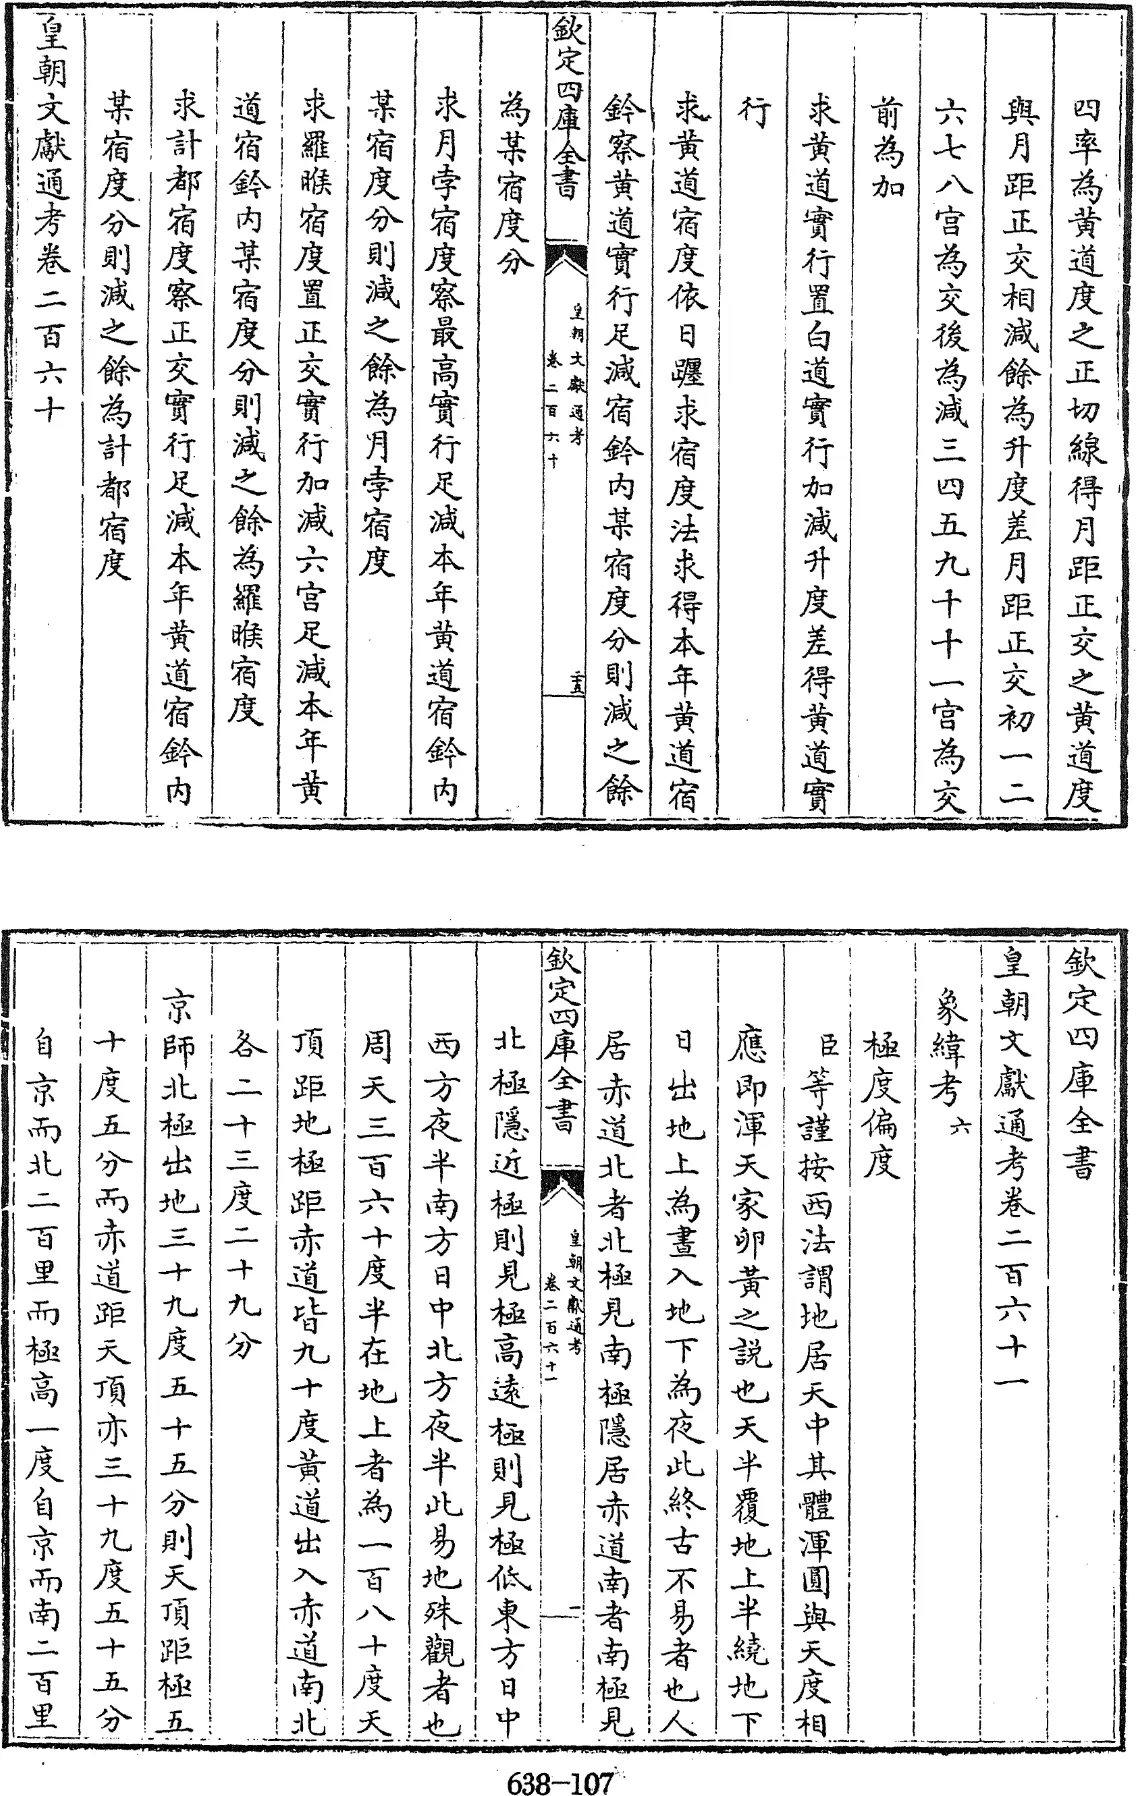 四率為黃道度之正切線得月距正交之黃道度
與月距正交相減餘為升度差月距正交初一二
六七八宫為交後為減三四五九十十一宫為交
前為加
求黃道實行置白道實行加減升度差得黃道實
行
求黃道宿度依日躔求宿度法求得本年黃道宿
鈐察黃道實行足減宿鈐内某宿度分則減之餘
欽定四庫全書
皇朝文獻通考
卷二百六十
二十五
為某宿度分
求月孛宿度察最高實行足減本年黃道宿鈐内
某宿度分則減之餘為月孛宿度
求羅㬋宿度置正交實行加減六宫足減本年黃
道宿鈐内某宿度分則減之餘為羅㬋宿度
求計都宿度察正交實行足減本年黃道宿鈐内
某宿度分則減之餘為計都宿度
皇朝文獻通考卷二百六十
欽定四庫全書
皇朝文獻通考卷二百六十一
象緯考六
極度偏度
臣等謹按西法謂地居天中其體渾圓與天度相
應即渾天家卵黃之説也天半覆地上半繞地下
日出地上為晝入地下為夜此終古不易者也人
居赤道北者北極見南極隱居赤道南者南極見
欽定四庫全書
皇朝文獻通考
卷二百六十一
一
北極隱近極則見極高遠極則見極低東方日中
西方夜半南方日中北方夜半此易地殊觀者也
周天三百六十度半在地上者為一百八十度天
頂距地極距赤道皆九十度黃道出入赤道南北
各二十三度二十九分
京師北極出地三十九度五十五分則天頂距極五
十度五分而赤道距天頂亦三十九度五十五分
自京而北二百里而極高一度自京而南二百里
638-107